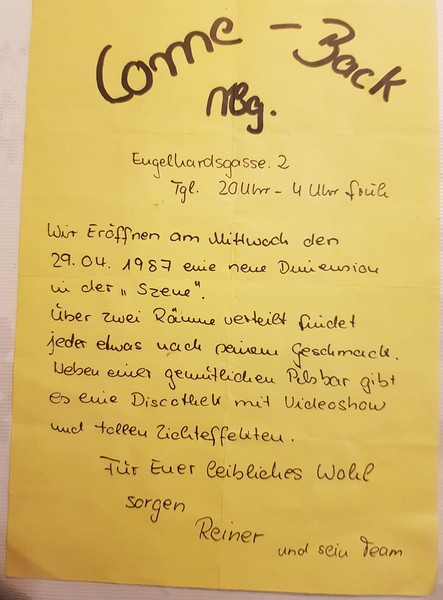 Come - Back
Nbg.
Engelhardsgasse. 2
Tgl. 20 Uhr - 4 Uhr früh
Wir Eröffnen am Mittwoch den
29.04.1987 eine neue Dimension
in der „Szene".
Über zwei Räume verteilt findet
jeder etwas nach seinem Geschmack.
Neben einer gemütlichen Pilsbar gibt
es eine Discothek mit Videoshow
und tollen Lichteffekten.
Für Euer leibliches Wohl
sorgen
Reiner
und sein Team